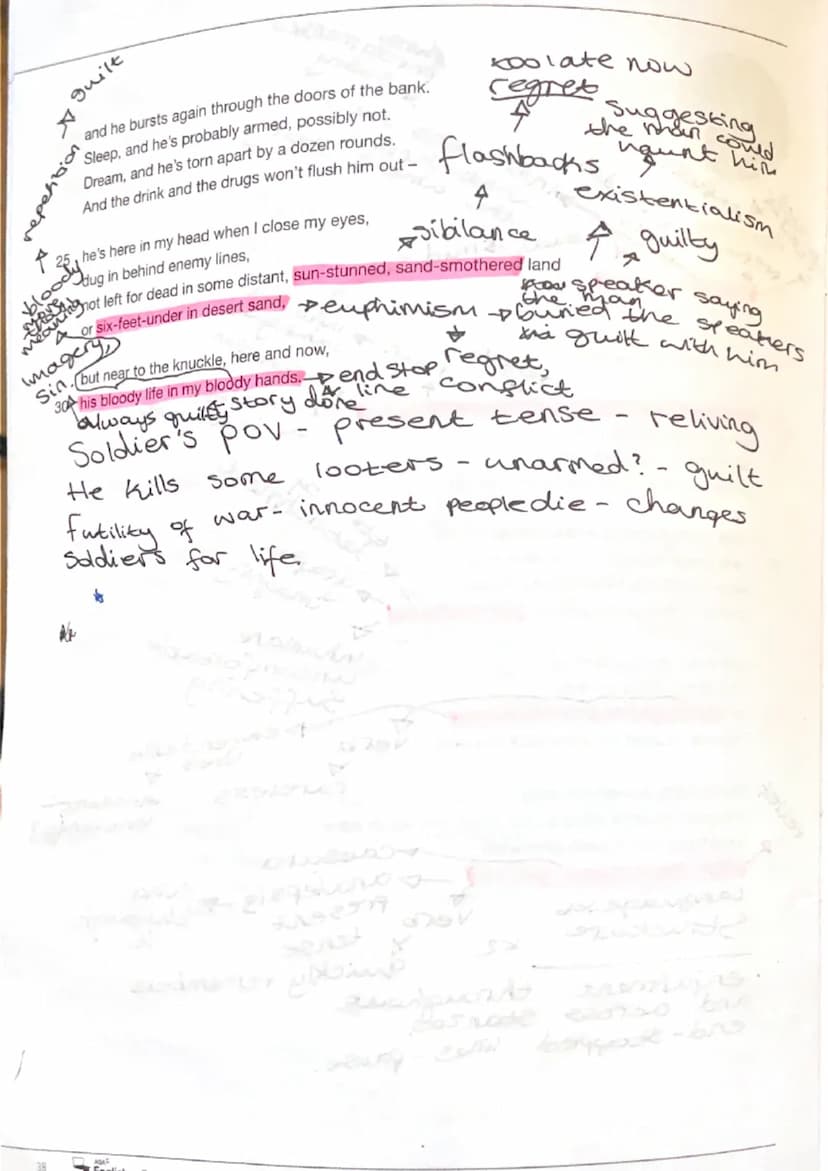 too late now
regret
guilt
repetition
and he bursts again through the doors of the bank.
Sleep, and he's probably armed, possibly not.
Dream, and he's torn apart by a dozen rounds.
And the drink and the drugs won't flush him out –
suggesting
the man could
haunt him
flashbacks
existentialism
sibilance
guilty
25 he's here in my head when I close my eyes,
dug in behind enemy lines,
not left for dead in some distant, sun-stunned, sand-smothered land
or six-feet-under in desert sand,
bloody
more
than one
meaning
euphimism
speaker saying
the man
buried the speakers
guilt with him
imagery
sin.
but near to the knuckle, here and now,
30 his bloody life in my bloody hands.
end stop
line
story done
regret,
conflict
always guilty
Soldier's POV - present tense - reliving
He kills some looters - unarmed? - guilt
futility of war - innocent people die - changes
soldiers for life
38
AQA